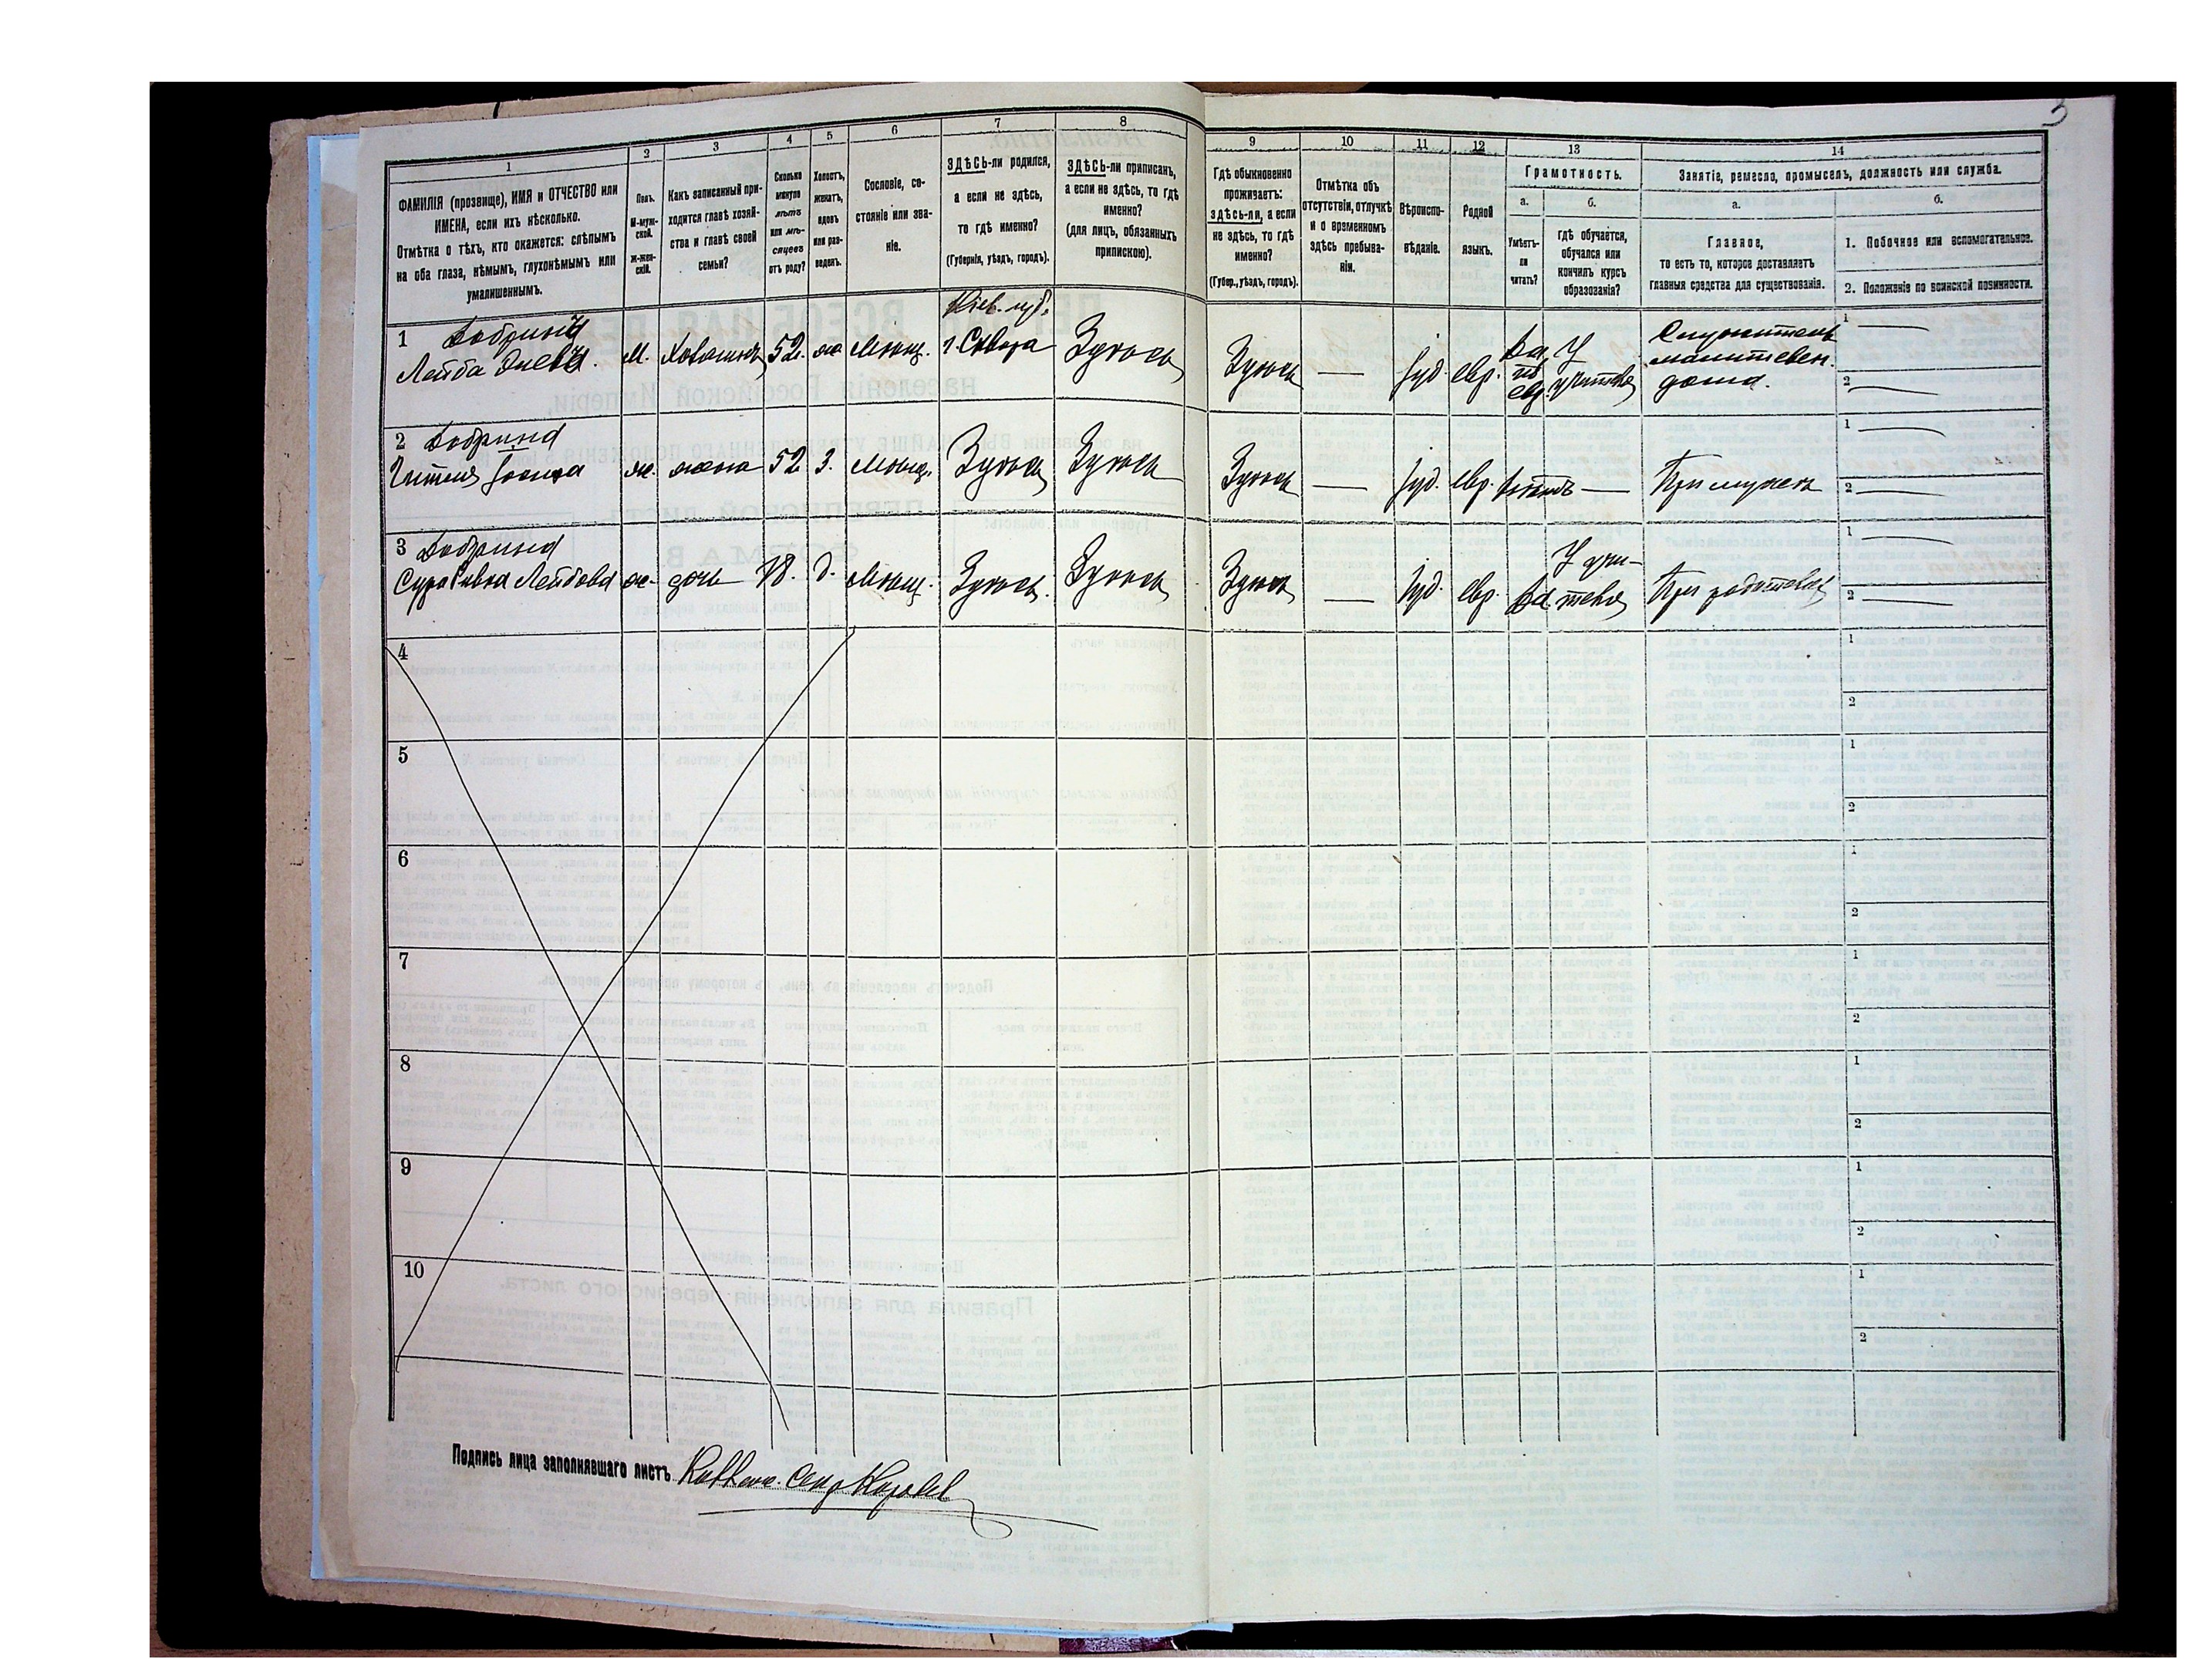 3
1
2
3
4
5
6
7
8
9
10
11
12
13
14
ФАМИЛІЯ (прозвище), ИМЯ и ОТЧЕСТВО или
ИМЕНА, если ихъ нѣсколько.
Отмѣтка о тѣхъ, кто окажется: слѣпымъ
на оба глаза, нѣмымъ, глухонѣмымъ или
умалишеннымъ.
Полъ.
М-муж-
ской.
Ж-жен-
скій.
Какъ записанный при-
ходится главѣ хозяй-
ства и главѣ своей
семьи?
Сколько
минуло
лѣтъ
или мѣ-
сяцевъ
отъ роду?
Холостъ,
женатъ,
вдовъ
или раз-
веденъ.
Сословіе, со-
стояніе или зва-
ніе.
ЗДѢСЬ-ли родился,
а если не здѣсь,
то гдѣ именно?
(Губернія, уѣздъ, городъ).
ЗДѢСЬ-ли приписанъ,
а если не здѣсь, то гдѣ
именно?
(для лицъ, обязанныхъ
припискою).
Гдѣ обыкновенно
проживаетъ:
здѣсь-ли, а если
не здѣсь, то гдѣ
именно?
(Губер., уѣздъ, городъ).
Отмѣтка объ
отсутствіи, отлучкѣ
и о временномъ
здѣсь пребыва-
ніи.
Вѣроиспо-
вѣданіе.
Родной
языкъ.
Грамотность.
а.
б.
Умѣетъ-
ли
читать?
Гдѣ обучается,
обучался или
кончилъ курсъ
образованія?
Занятіе, ремесло, промыселъ, должность или служба.
а.
б.
Главное,
то есть то, которое доставляетъ
главныя средства для существованія.
1. Побочное или вспомогательное.
2. Положеніе по воинской повинности.
1 Добринъ
Лейба
М.
52.
Мѣщ.
Кіев. губ.
г. Сквира
Здѣсь
Здѣсь
—
Іуд.
евр.
Да
по
евр.
У
учителя
Служитель
молитвен.
дома.
1 —
2 —
2 Добрина
ж.
жена
52
З.
Мѣщ.
Здѣсь
Здѣсь
Здѣсь
—
Іуд.
евр.
нѣтъ
—
При мужѣ
1 —
2 —
3 Добрина
Сура Ривка Лейбова
ж.
дочь
18.
Д.
Мѣщ.
Здѣсь
Здѣсь
Здѣсь
—
Іуд.
евр.
Да
У учи-
теля
При родителяхъ
1 —
2 —
4
1
2
5
1
2
6
1
2
7
1
2
8
1
2
9
1
2
10
1
2
Подпись лица заполнявшаго листъ